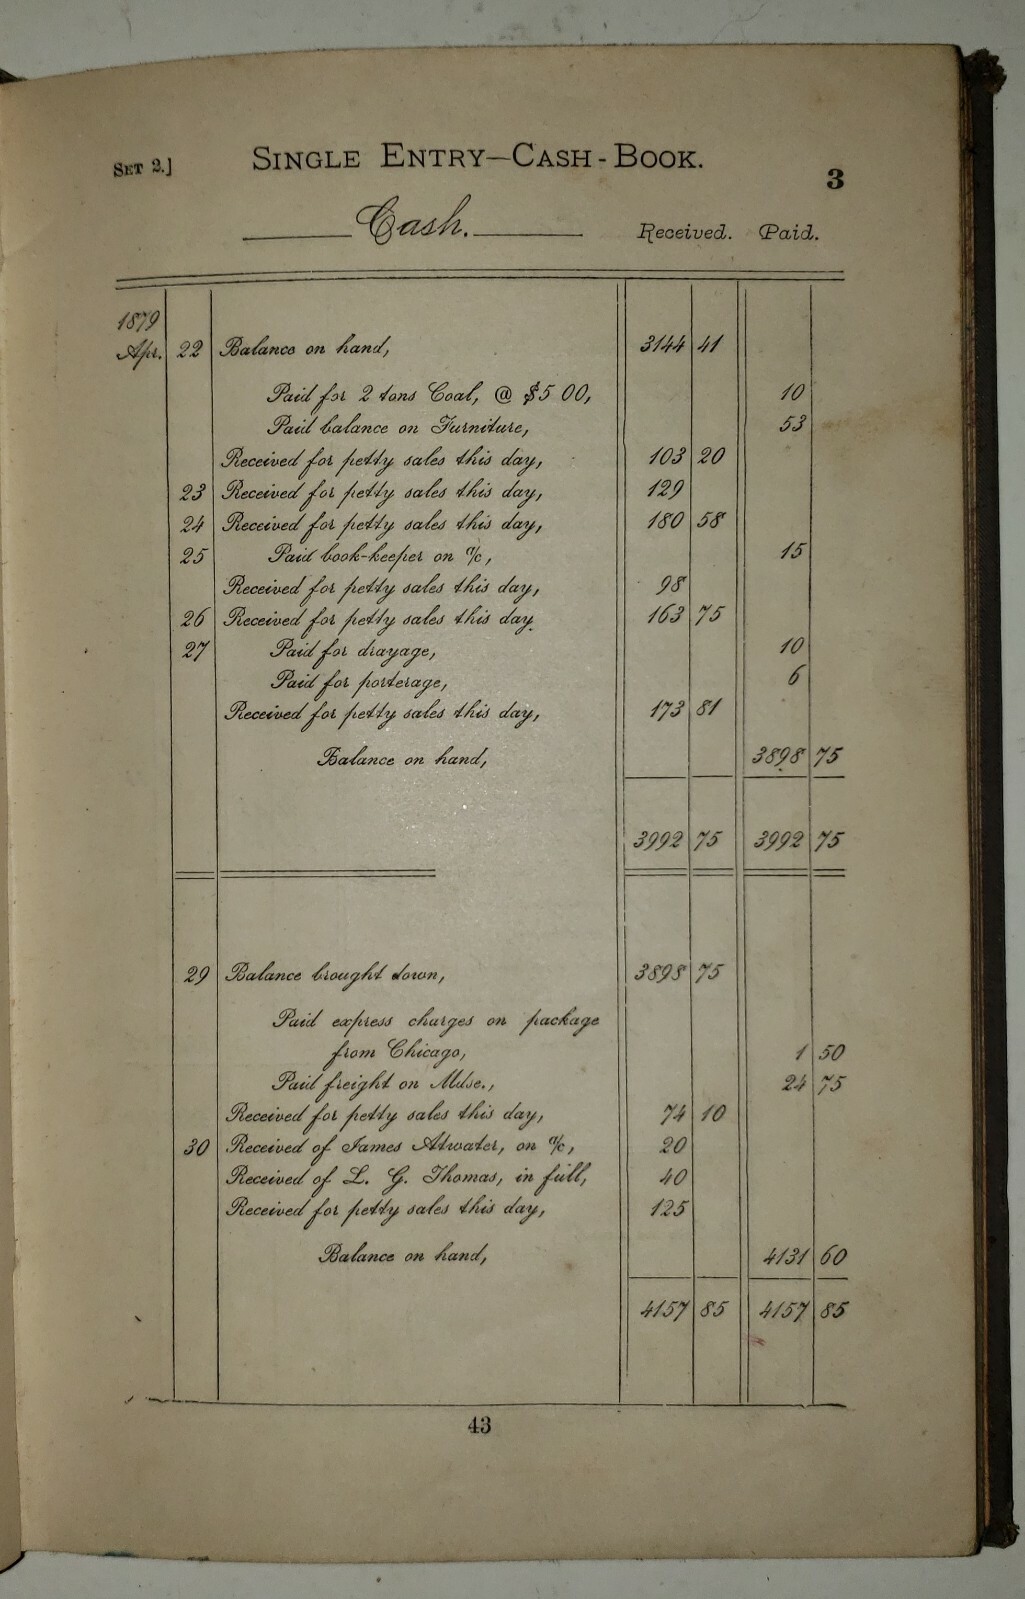 SET 2.]
SINGLE ENTRY—CASH-BOOK.
3
Cash. Received. Paid.
1879
Apr. 22 Balance on hand, 3144 41
Paid for 2 tons Coal, @ $5 00, 10
Paid balance on Furniture, 53
Received for petty sales this day, 103 20
23 Received for petty sales this day, 129
24 Received for petty sales this day, 180 58
25 Paid book-keeper on a/c, 15
Received for petty sales this day, 98
26 Received for petty sales this day. 163 75
27 Paid for drayage, 10
Paid for porterage, 6
Received for petty sales this day, 173 81
Balance on hand, 3898 75
3992 75 3992 75
29 Balance brought down, 3898 75
Paid express charges on package
from Chicago, 1 50
Paid freight on Mdse., 24 75
Received for petty sales this day, 74 10
30 Received of James Atwater, on a/c, 20
Received of L. G. Thomas, in full, 40
Received for petty sales this day, 125
Balance on hand, 4131 60
4157 85 4157 85
43